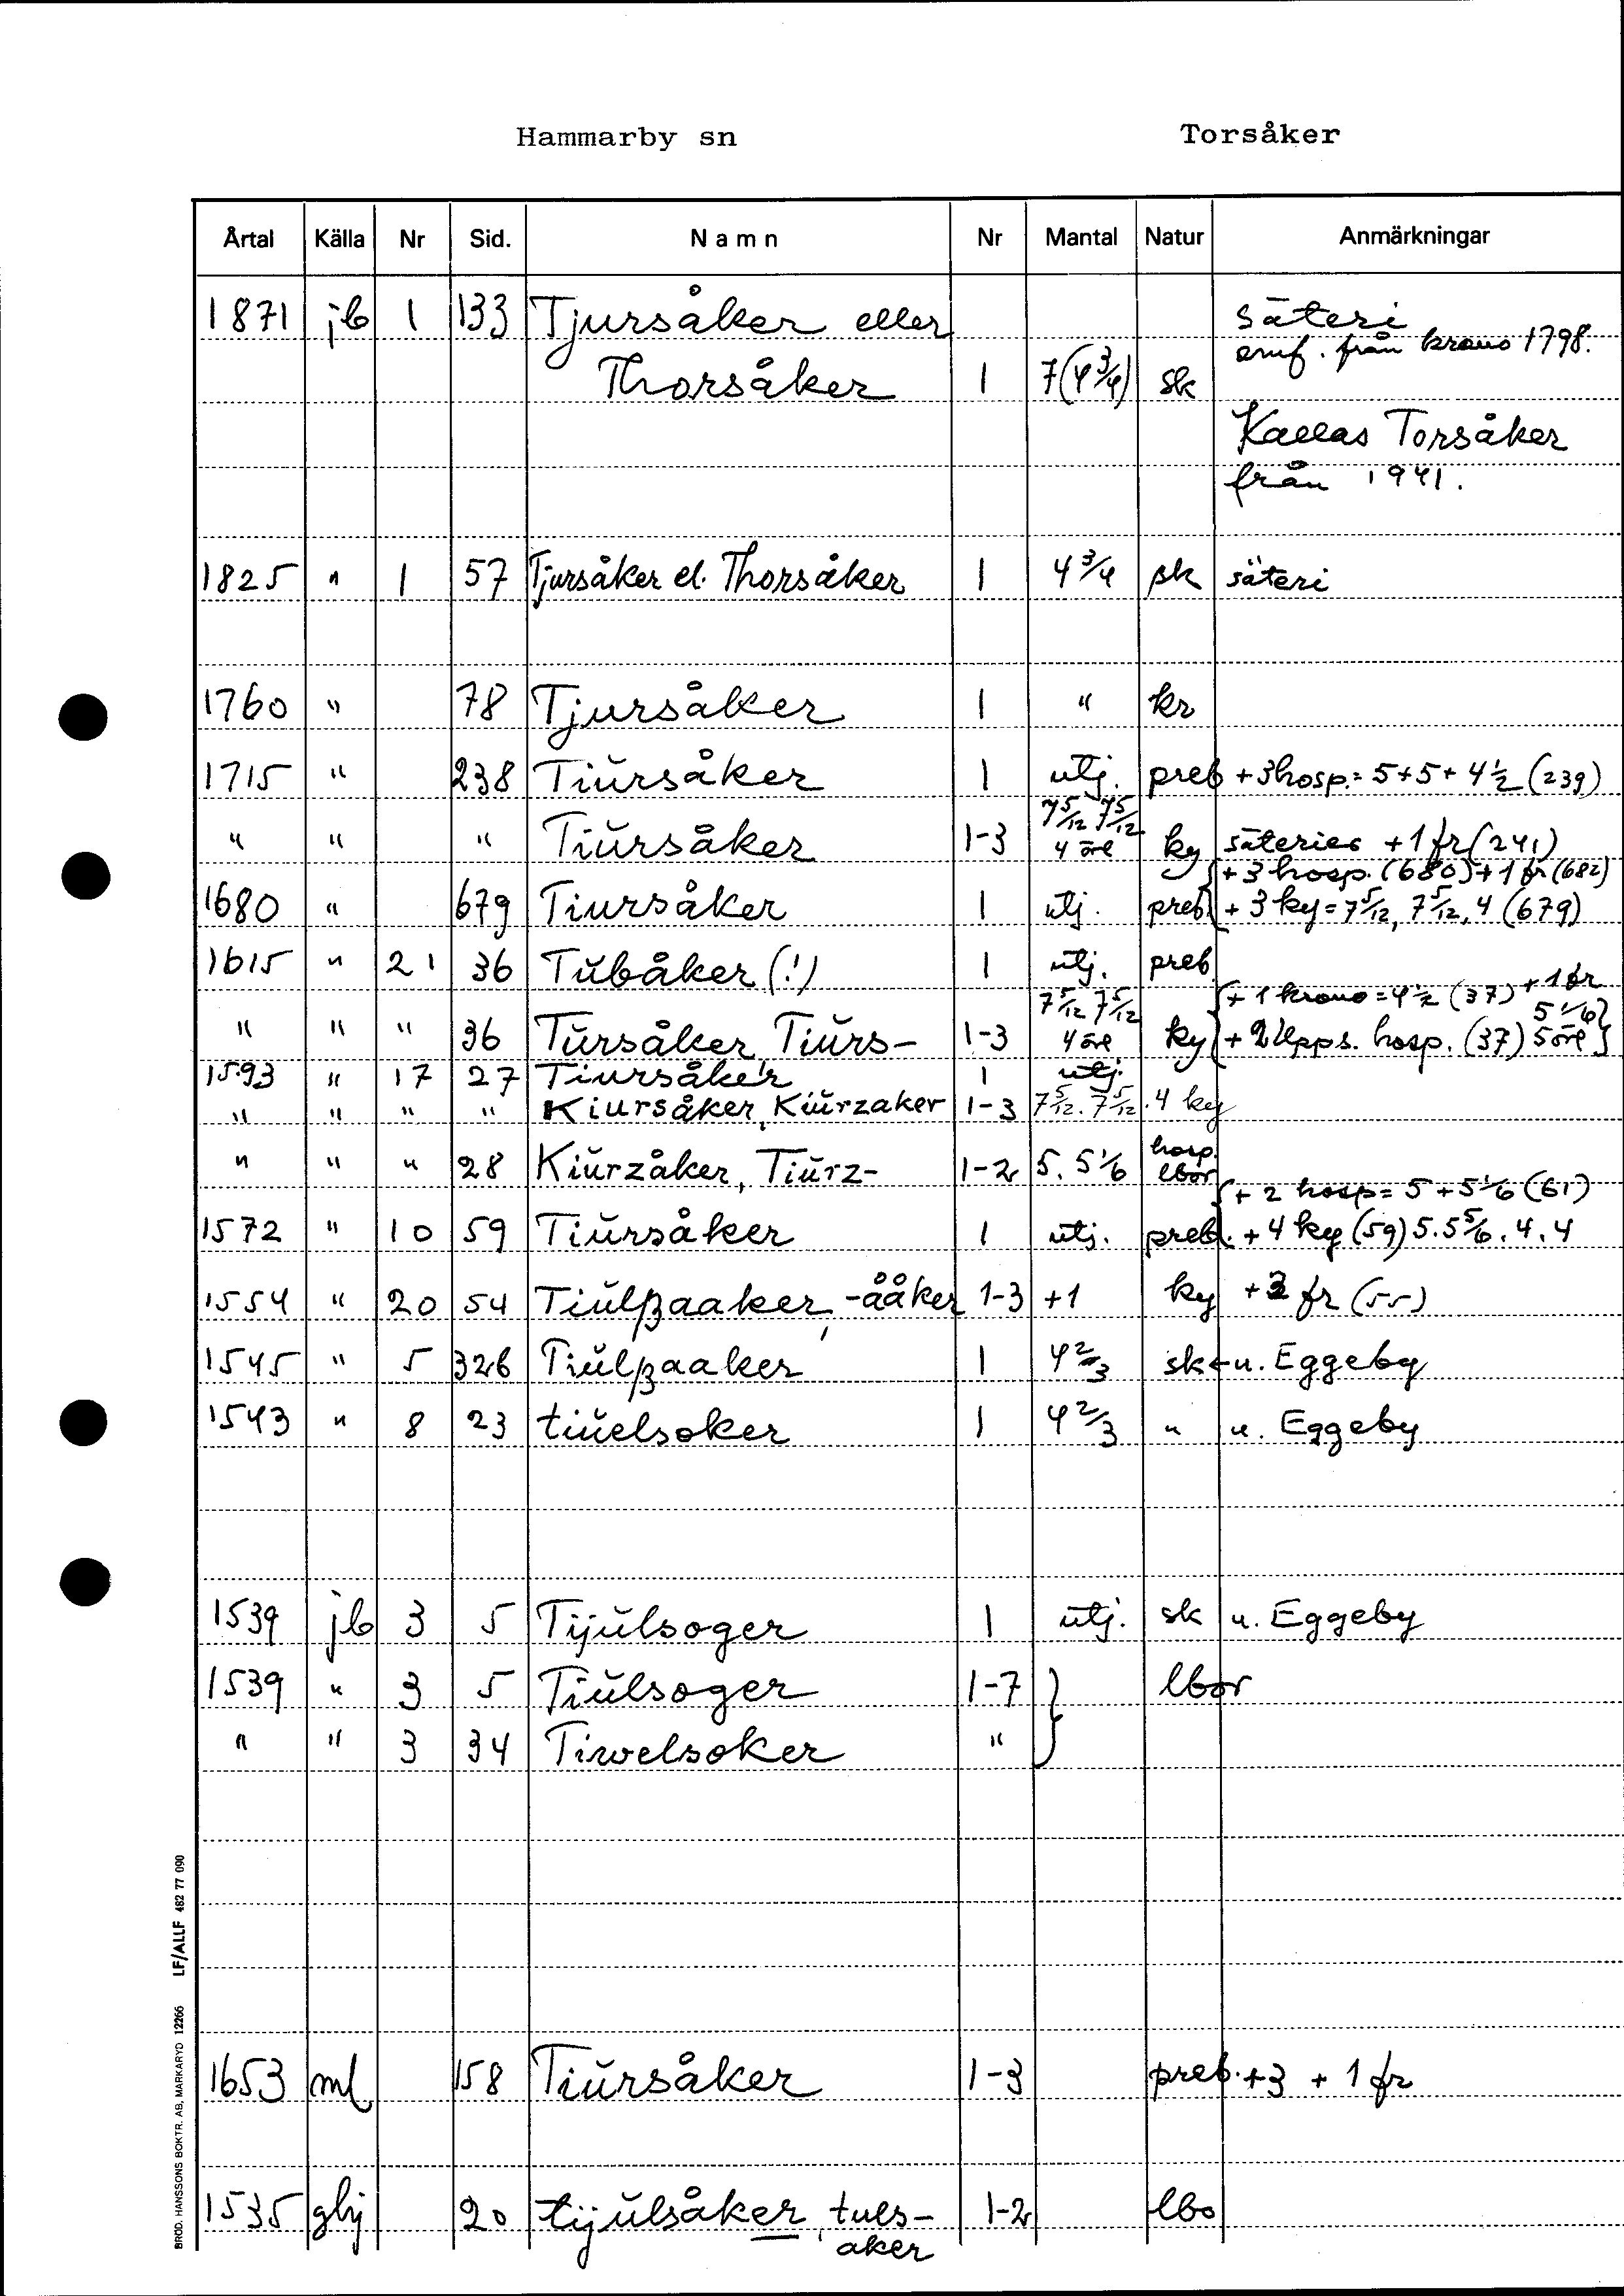 Hammarby sn Torsåker
Årtal Källa Nr Sid. Namn Nr Mantal Natur Anmärkningar
1871 jb 1 133 Tjursåker eller säteri
omf. från krono 1798.
Thorsåker 1 7(4 3/4) sk
Kallas Torsåker
från 1941.
1825 " 1 57 Tjursåker el. Thorsåker 1 4 3/4 sk säteri
1760 " 78 Tjursåker 1 " kr
1715 " 238 Tiŭrsåker 1 utj. preb + 3 hosp. = 5+5+4 1/2 (239)
7 5/12 7 5/12
" " " Tiŭrsåker 1-3 4 öre ky säteries + 1 fr (241)
+ 3 hosp. (680) + 1 fr (682)
1680 " 679 Tiursåker 1 utj. preb. + 3 ky = 7 5/12, 7 5/12, 4 (679)
1615 " 21 36 Tŭbåker (!) 1 utj. preb
7 5/12 7 5/12 + 1 krono = 4 1/2 (37) + 1 fr 5 1/6
" " " 36 Tŭrsåker, Tiŭrs- 1-3 4 öre ky + 2 Upps. hosp. (37) 5 öre
1593 " 17 27 Tiursåker 1 utj.
" " " " Kiursåker, Kiŭrzaker 1-3 7 5/12. 7 5/12. 4 ky
" " " 28 Kiŭrzåker, Tiŭrz- 1-2 5. 5 1/6 hosp. lbor
+ 2 hosp = 5 + 5 1/6 (61)
1572 " 10 59 Tiŭrsåker 1 utj. preb. + 4 ky (59) 5. 5 5/6. 4. 4
1554 " 20 54 Tiŭlßaaker, -ååker 1-3 +1 ky + 3 fr (55)
1545 " 5 326 Tiŭlßaaker 1 4 2/3 sk ← u. Eggeby
1543 " 8 23 tiŭelsoker 1 4 2/3 " u. Eggeby
1539 jb 3 5 Tijŭlsoger 1 utj. sk u. Eggeby
1539 " 3 5 Tiŭlsoger 1-7 } lbor
" " 3 34 Tiwelsoker "
1653 ml 158 Tiŭrsåker 1-3 preb. +3 + 1 fr
1535 ghj 20 tijŭlsåker, tuls- 1-2 lbo
aker
BROD. HANSSONS BOKTR. AB, MARKARYD 12266 LF/ALLF 482 77 090